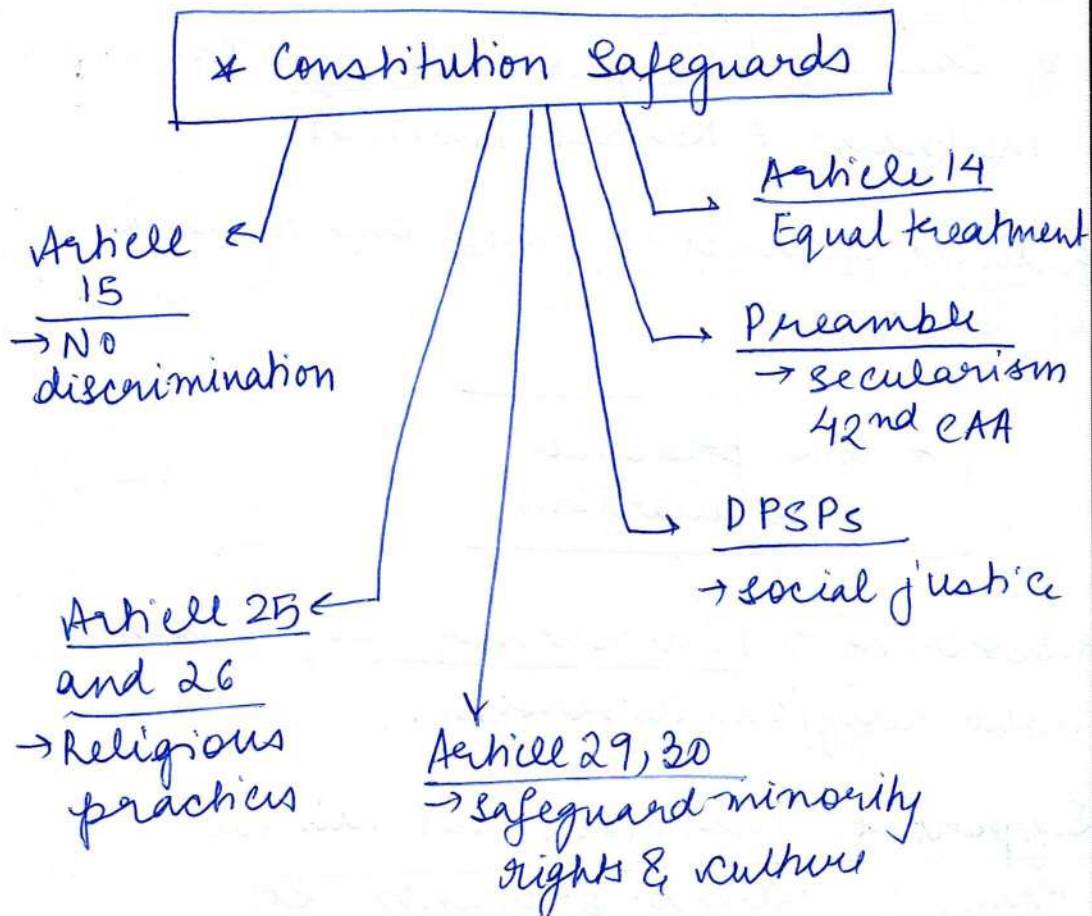 * Constitution Safeguards
Article 14
Equal treatment
Article
15
→ No
discrimination
Preamble
→ secularism
42nd CAA
DPSPs
→ social justice
Article 25
and 26
→ Religious
practices
Article 29, 30
→ safeguard minority
rights & culture